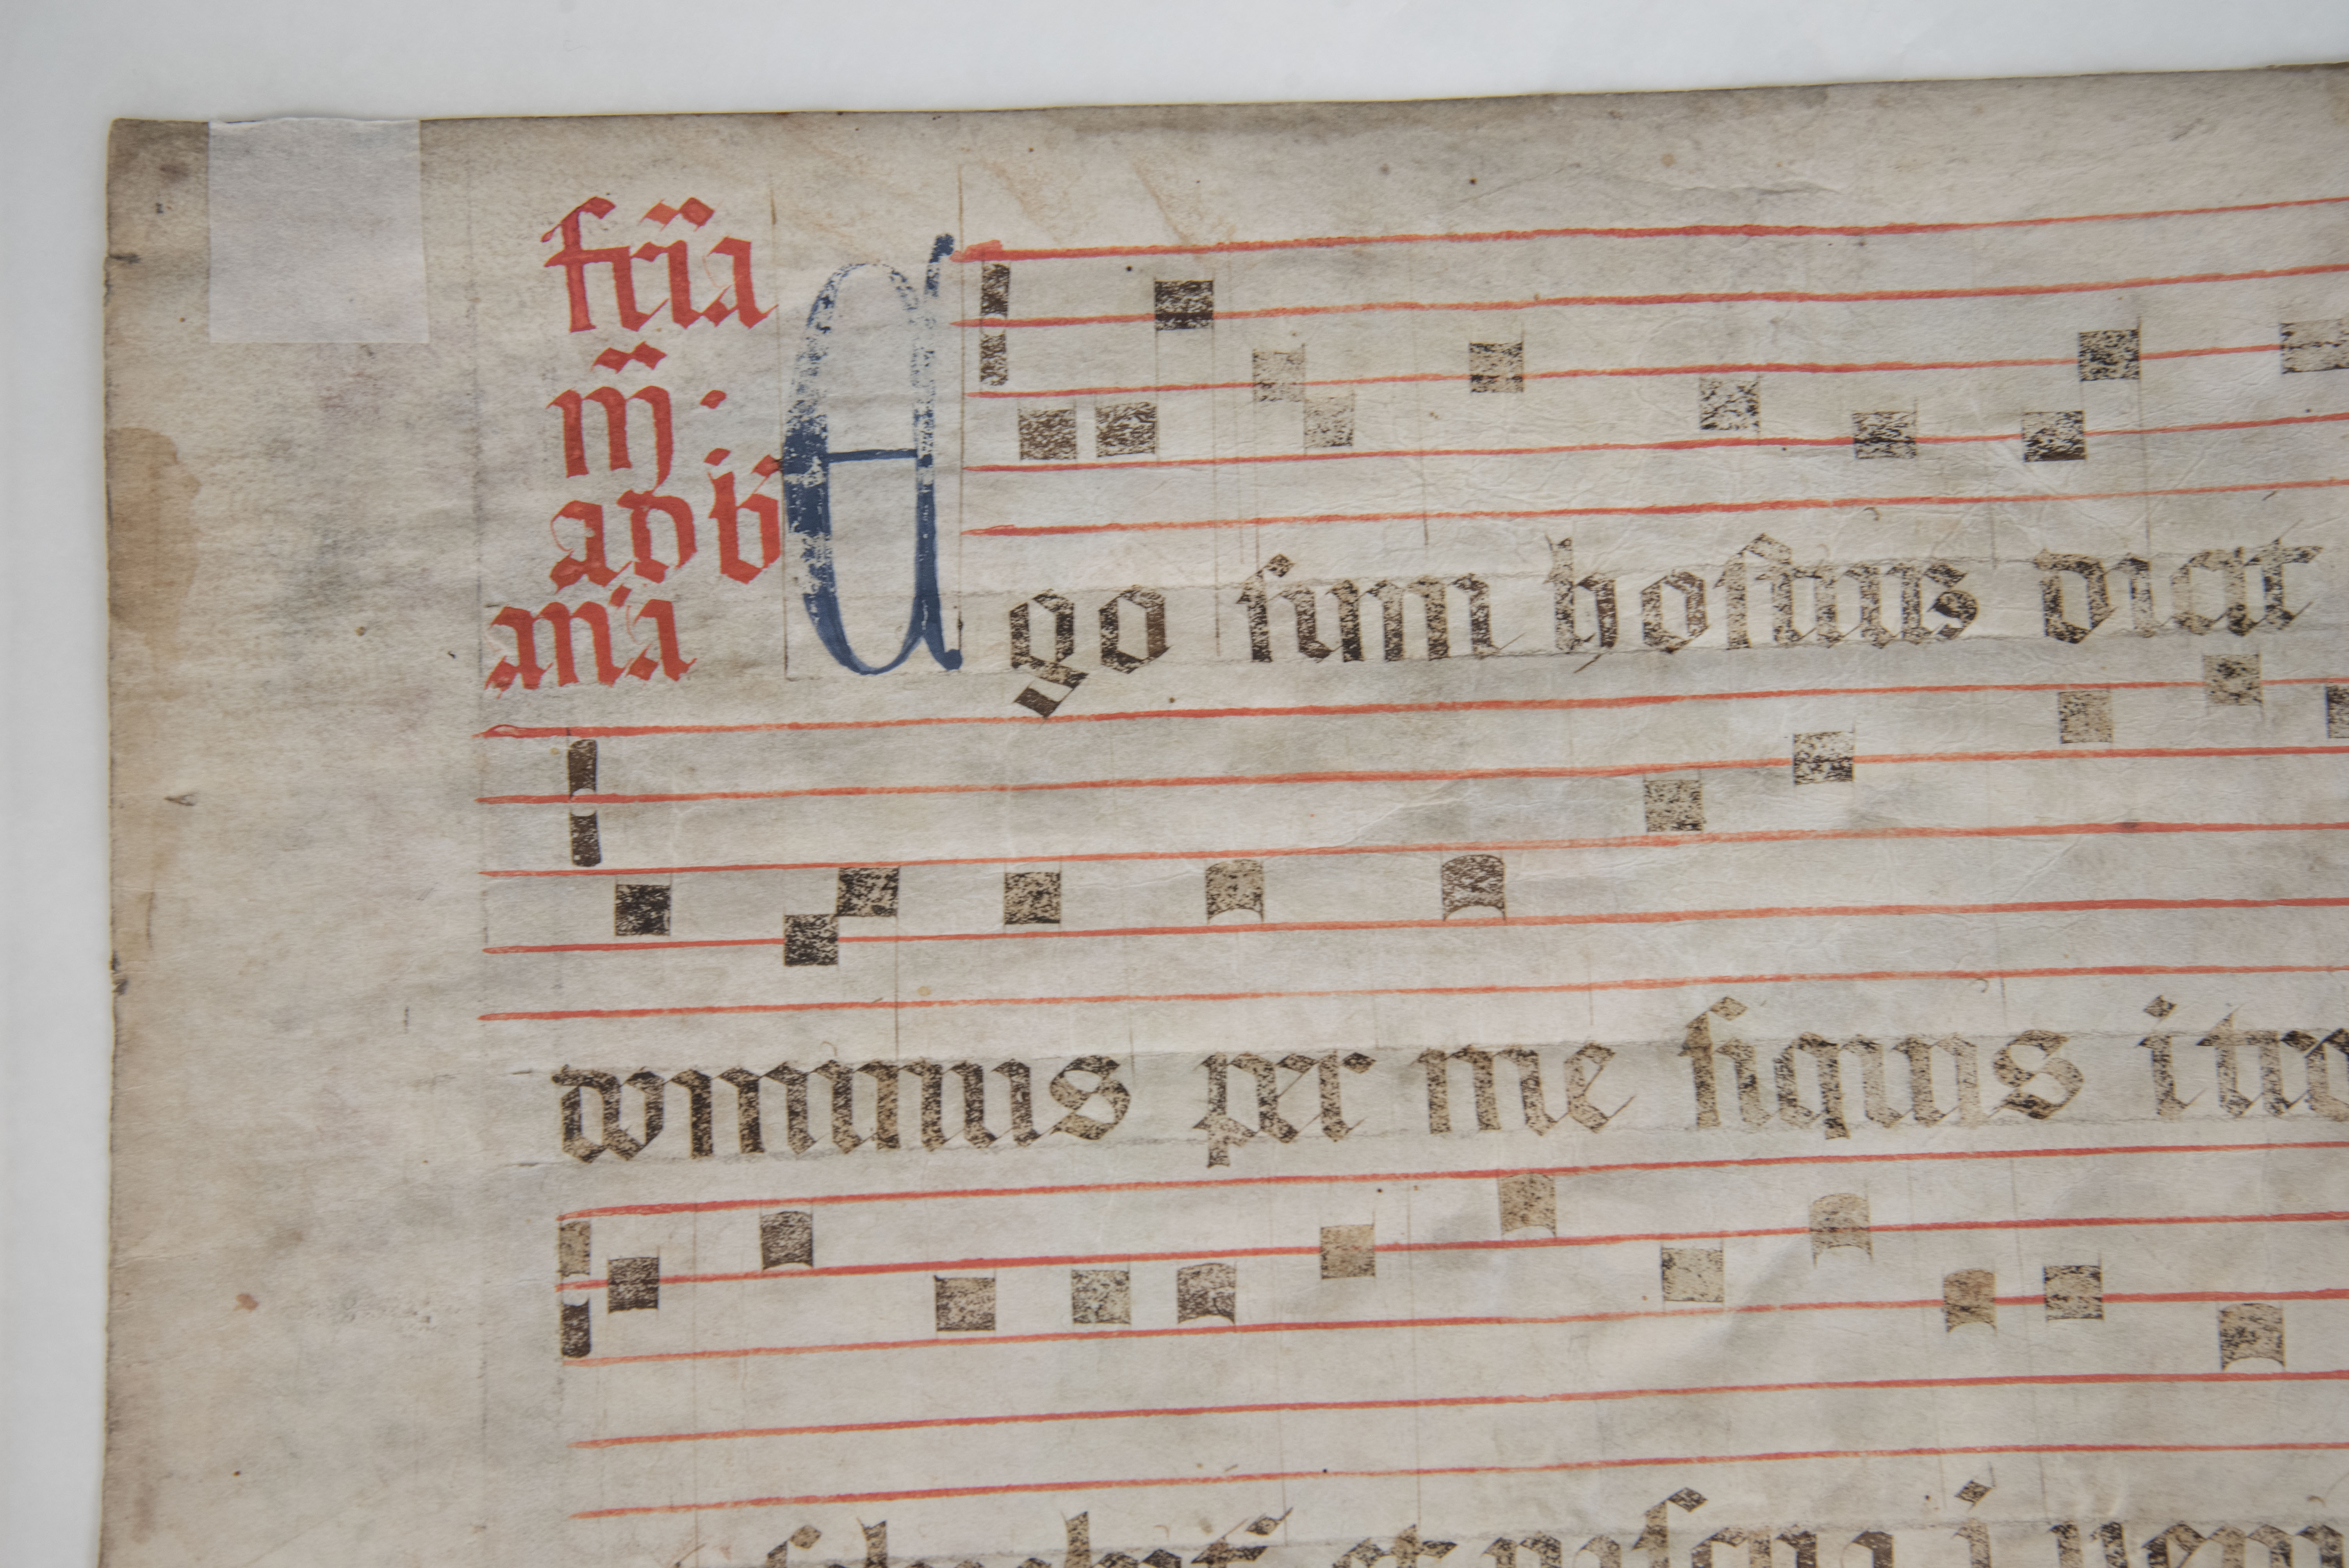 fria
iij.
ad b
an̄a
Ego sum hostius dicit
dominus per me siquis itro
saluabit et pascua i ueni